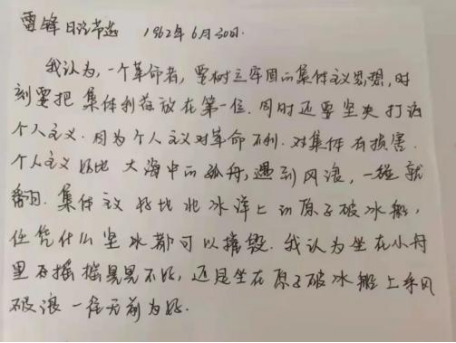 雷锋日记节选 1962年6月30日.
我认为,一个革命者,要树立牢固的集体主义思想,时
刻要把集体利益放在第一位.同时还要坚决打消
个人主义.因为个人主义对革命不利.对集体有损害.
个人主义好比大海中的孤舟,遇到风浪,一碰就
翻.集体主义好比北冰洋上的原子破冰船,
任凭什么坚冰都可以摧毁.我认为坐在小舟
里摇摇晃晃不好,还是坐在原子破冰船上乘风
破浪一往无前为好.